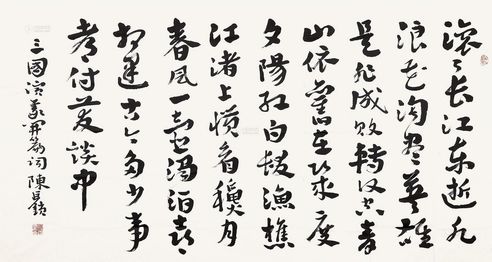 滚〻长江东逝水
浪花淘尽英雄
是非成败转头空青
山依舊在几度
夕陽红白髮漁樵
江渚上惯看穐月
春風一壶浊酒喜
相逢古今多少事
都付笑談中
三國演義開篇词 陳